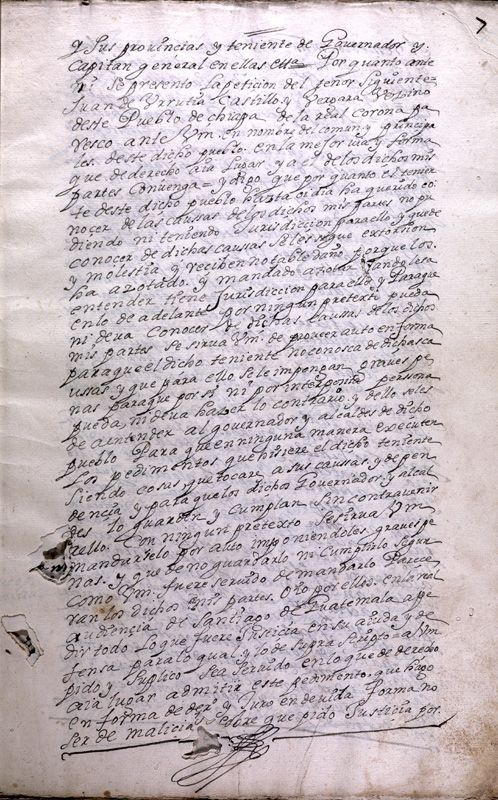 7
y Sus provincias y teniente de Governador y.
Capitan general en ellas etta= Por quanto ante
mi Se presento La peticion del señor Siguiente=
Juan de Urrutia Castillo y Vergara Vezino
deste Pueblo de chiapa de la real corona pa
resco ante Vm. en nombre del comun y principa
les. deste dicho pueblo. en la mejor via y forma
que de derecho aia Lugar y a el de los dichos mis
partes Convenga= y digo que por quanto el tenien
te deste dicho pueblo hasta oi dia ha querido co
noçer de las caussas de los dichos mis partes no pu
diendo ni teniendo Jurisdiccion para ello y que de
conocer de dichas caussas se les sigue extorsion
y molestia y reciben notable daño porque los.
ha azotado. y mandado azotar dando les a
entender tiene Jurisdiccion para ello y Paraque
en lo de adelante por ningun pretexto pueda
ni deva Conocer de dichas Causas de los dichos
mis partes Se sirva Vm. de proveer auto en forma
paraque el dicho teniente no conosca de dichas ca
ussas y que para ello Se le impongan graves pe
nas paraque por si ni por interposita persona
pueda, ni deva hazer lo contrario, y dello Se les
de a entender al governador y alcaldes de dicho
pueblo Para que en ninguna manera executen
Los pedimentos que hisiere el dicho teniente
Siendo cosas que tocare a sus caussas y depen
dencia y para que los dichos Governador y alcal
des lo guarden y Cumplan Sin contravenir
a ello. Con ningun pretexto Se sirva Vm
mandarselo por auto imponiendoles graves pe
nas. y que de no guardarlo ni Cumplirlo Segun
como Vm. fuere servido de mandarlo Parece
ran los dichos mis partes. O yo por ellos. en la real
audiençia de Santiago de Guatemala a pe
dir todo Lo que fuere Justicia en su aiuda y de
fensa para lo qual y lo de Supra Scripto= a Vm
pido y Suplico Sea Servido en lo que de derecho
aia lugar admitir este pedimento que hago
en forma de derº y Juro en devida forma no
Ser de malicia Sobre que pido Justicia por